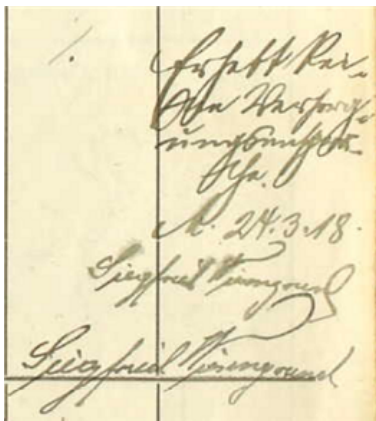 Erhebt kei-
ne Versorg-
ungsansprü-
che.
M. 24.3.18.
Siegfried Wiesengrund
Siegfried Wiesengrund